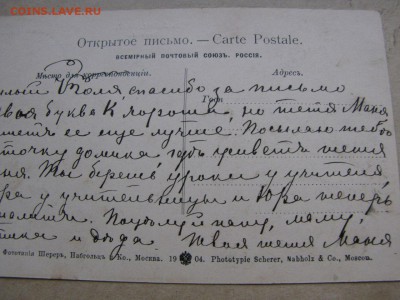 COINS.LAVE.RU
Открытое письмо. — Carte Postale.
ВСЕМІРНЫЙ ПОЧТОВЫЙ СОЮЗЪ. РОССІЯ.
Мѣсто для корреспонденціи.
Адресъ.
Коля, спасибо за письмо
буква К хороша, но тетя Маня
ее еще лучше. Посылаю тебѣ
домика, гдѣ живетъ тетя
Ты берешь уроки у учителя,
у учительницы и Юра теперь
Поцѣлуй папу, маму,
и дѣда. Твоя тетя Маня
Фототипія Шереръ, Набгольцъ и Ко., Москва. 19 04. Phototypie Scherer, Nabholz & Co., Moscou.